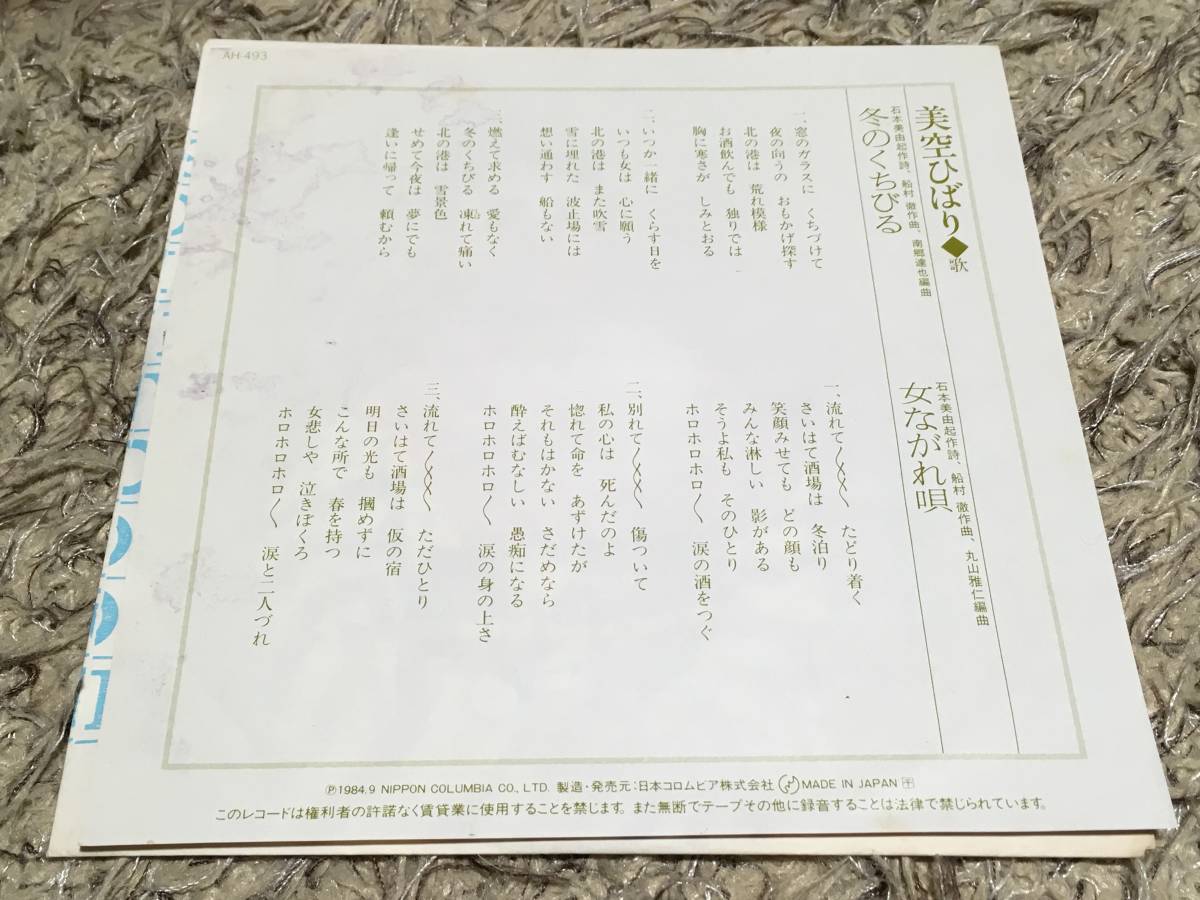 AH-493
美空ひばり◆歌
冬のくちびる
石本美由起作詩、船村 徹作曲、南郷達也編曲
一、窓のガラスに くちづけて
夜の向うの おもかげ探す
北の港は 荒れ模様
お酒飲んでも 独りでは
胸に寒さが しみとおる
二、いつか一緒に くらす日を
いつも女は 心に願う
北の港は また吹雪
雪に埋れた 波止場には
想い通わす 船もない
三、燃えて求める 愛もなく
冬のくちびる 凍れて痛い
北の港は 雪景色
せめて今夜は 夢にでも
逢いに帰って 頼むから
女ながれ唄
石本美由起作詩、船村 徹作曲、丸山雅仁編曲
一、流れて〱〱〱 たどり着く
さいはて酒場は 冬泊り
笑顔みせても どの顔も
みんな淋しい 影がある
そうよ私も そのひとり
ホロホロホロ〱 涙の酒をつぐ
二、別れて〱〱〱 傷ついて
私の心は 死んだのよ
惚れて命を あずけたが
それもはかない さだめなら
酔えばむなしい 愚痴になる
ホロホロホロ〱 涙の身の上さ
三、流れて〱〱〱 ただひとり
さいはて酒場は 仮の宿
明日の光も 摑めずに
こんな所で 春を待つ
女悲しや 泣きぼくろ
ホロホロホロ〱 涙と二人づれ
Ⓟ1984.9 NIPPON COLUMBIA CO., LTD. 製造・発売元:日本コロムビア株式会社 MADE IN JAPAN
このレコードは権利者の許諾なく賃貸業に使用することを禁じます。また無断でテープその他に録音することは法律で禁じられています。